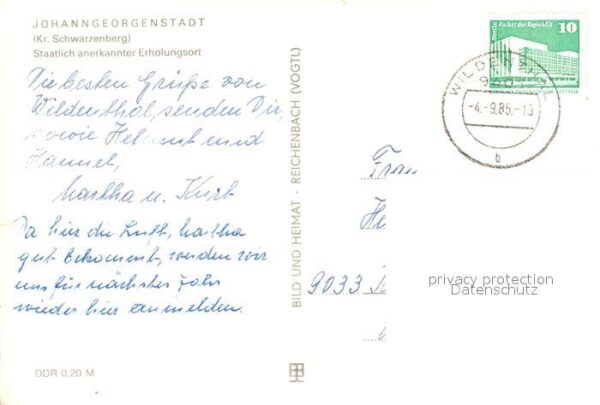 JOHANNGEORGENSTADT
(Kr. Schwarzenberg)
Staatlich anerkannter Erholungsort
Die besten Grüße von
Wildenthal, senden Dir,
sowie Helmut und
Hannel,
Martha u. Kurt
Da hier die Luft, Martha
gut bekommt, werden wir
uns für nächstes Jahr
wieder hier anmelden.
DDR 0,20 M
BILD UND HEIMAT · REICHENBACH (VOGTL)
Palast der Republik
10
-4.-9.85.-13
b
9033
privacy protection
Datenschutz